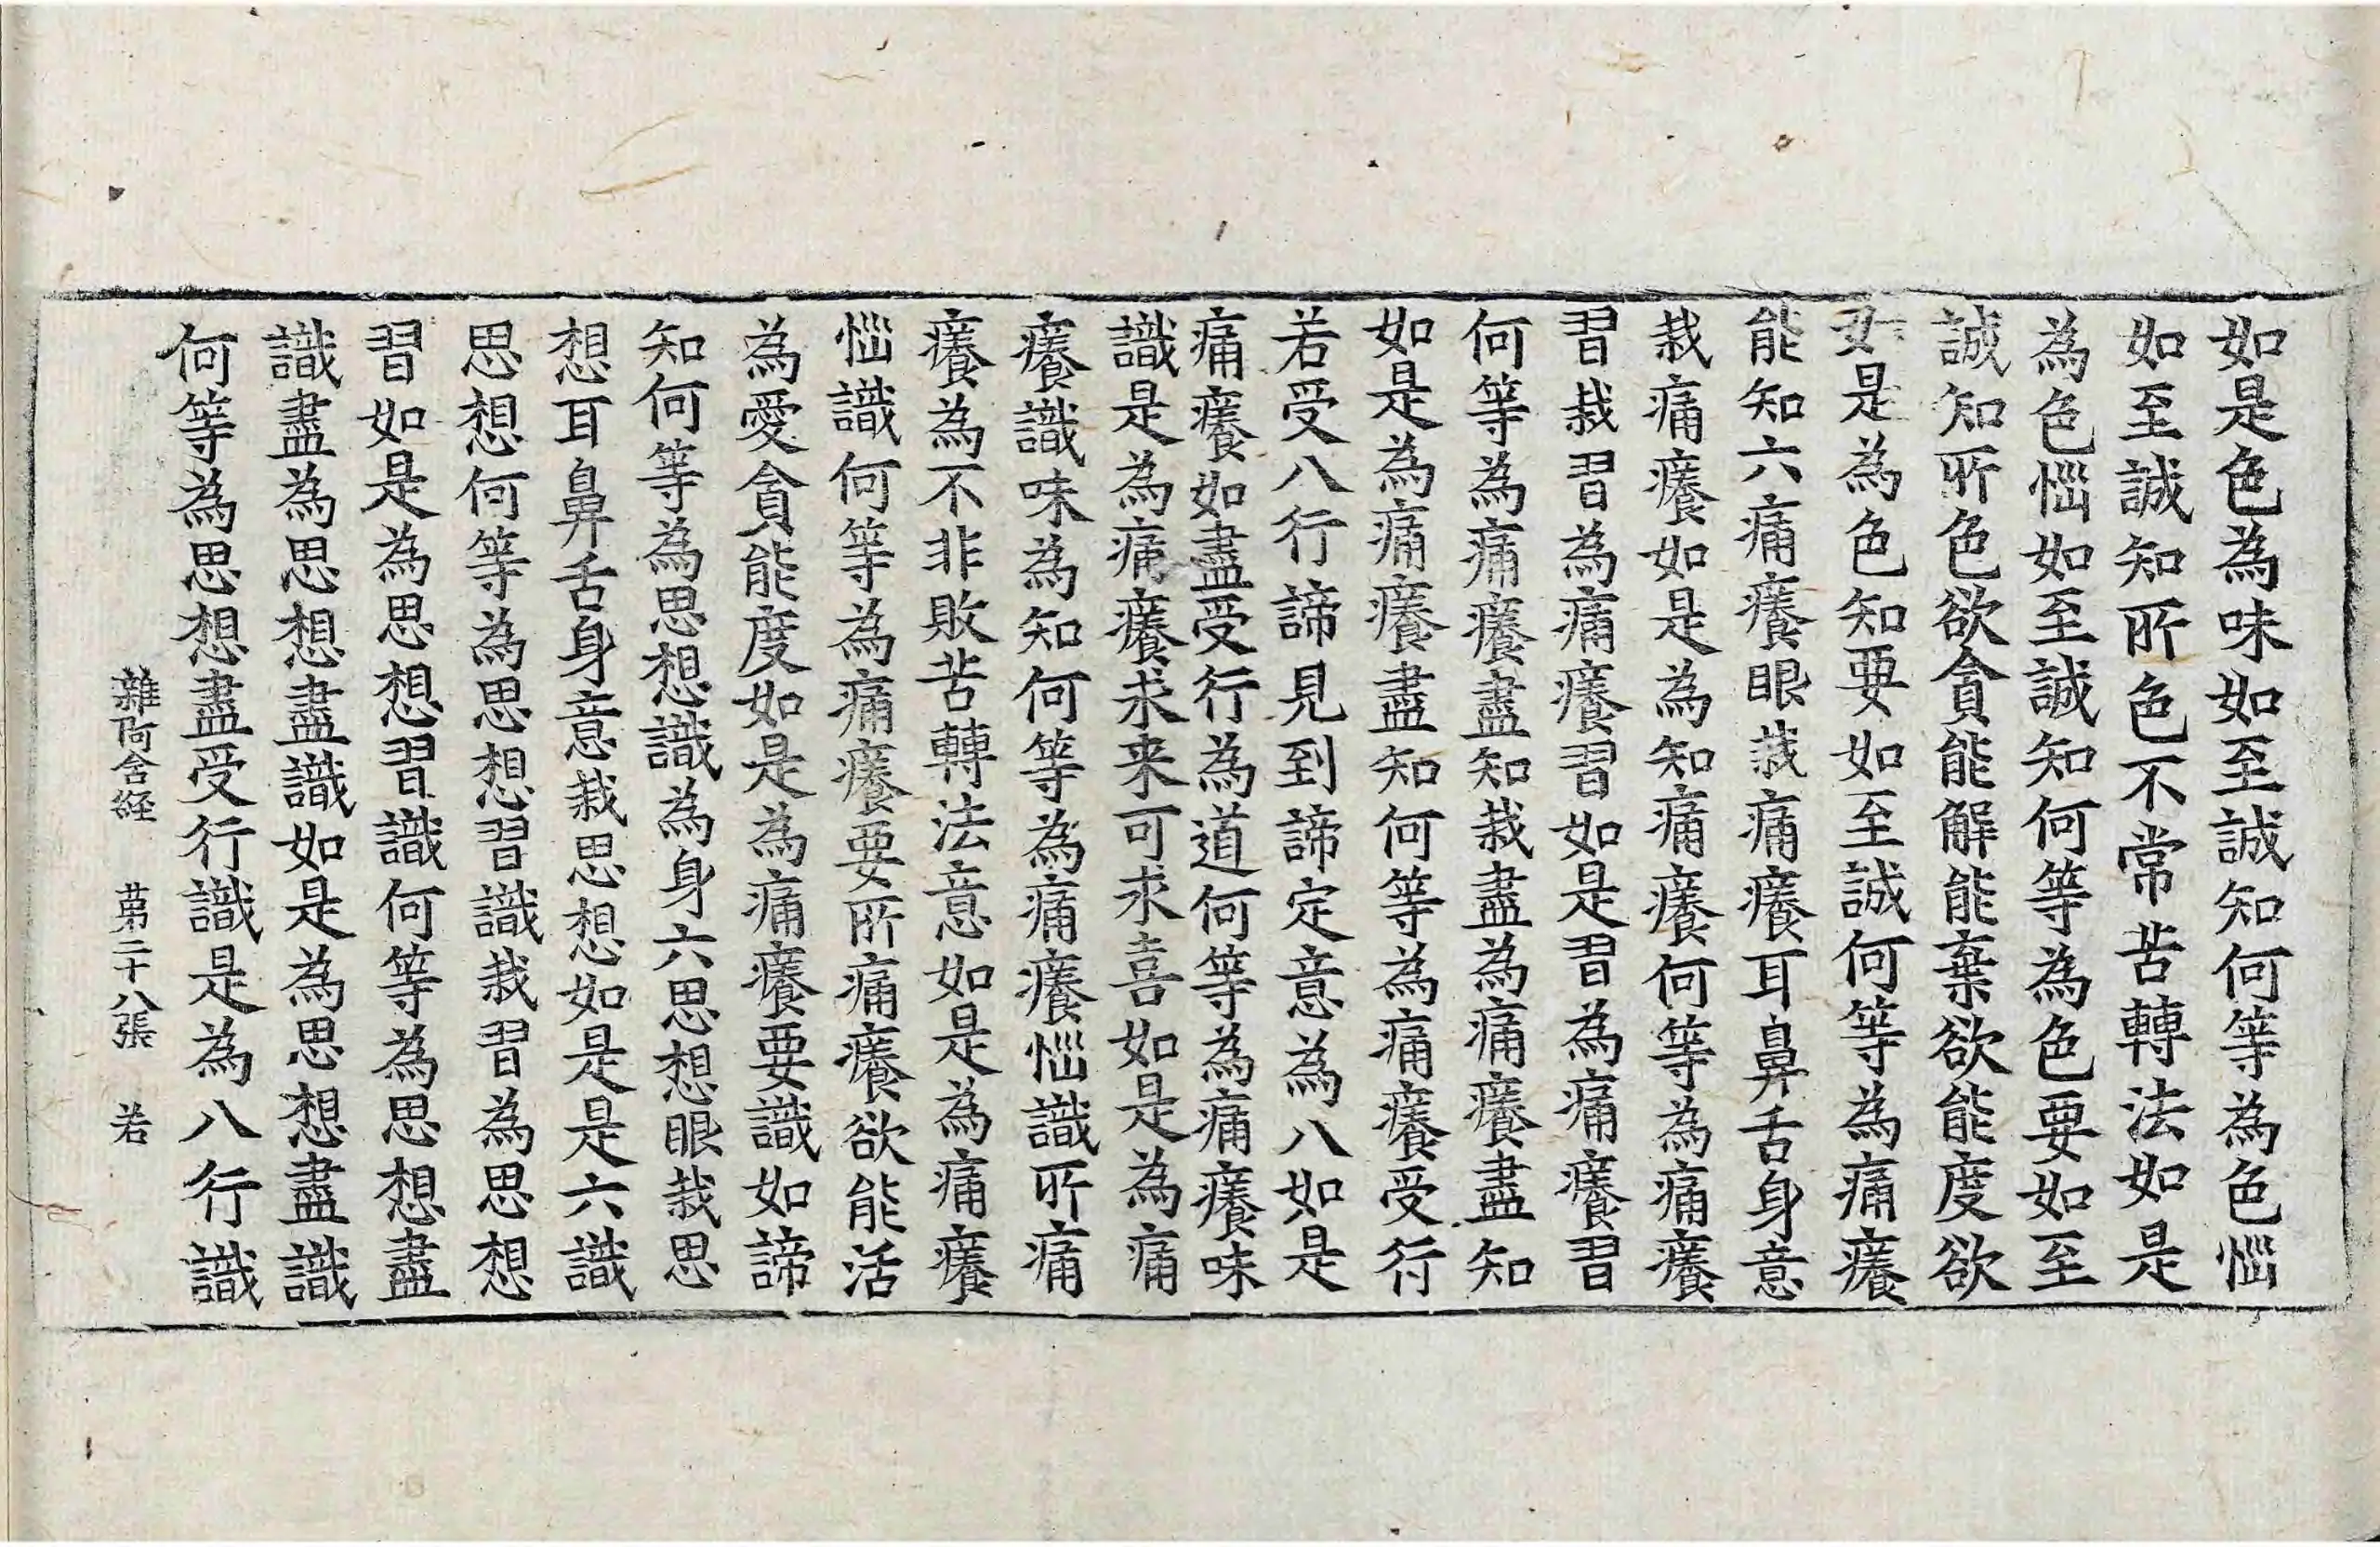 如是色為味如至誠知何等為色惱
如至誠知所色不常苦轉法如是
為色惱如至誠知何等為色要如至
誠知所色欲貪能解能棄欲能度欲
如是為色知要如至誠何等為痛癢
能知六痛癢眼栽痛癢耳鼻舌身意
栽痛癢如是為知痛癢何等為痛癢
習栽習為痛癢習如是習為痛癢習
何等為痛癢盡知栽盡為痛癢盡知
如是為痛癢盡知何等為痛癢受行
若受八行諦見到諦定意為八如是
痛癢如盡受行為道何等為痛癢味
識是為痛癢求来可求喜如是為痛
癢識味為知何等為痛癢惱識所痛
癢為不非敗苦轉法意如是為痛癢
惱識何等為痛癢要所痛癢欲能活
為愛貪能度如是為痛癢要識如諦
知何等為思想識為身六思想眼栽思
想耳鼻舌身意栽思想如是是六識
思想何等為思想習識栽習為思想
習如是為思想習識何等為思想盡
識盡為思想盡識如是為思想盡識
何等為思想盡受行識是為八行識
雜阿含経 第二十八張 若